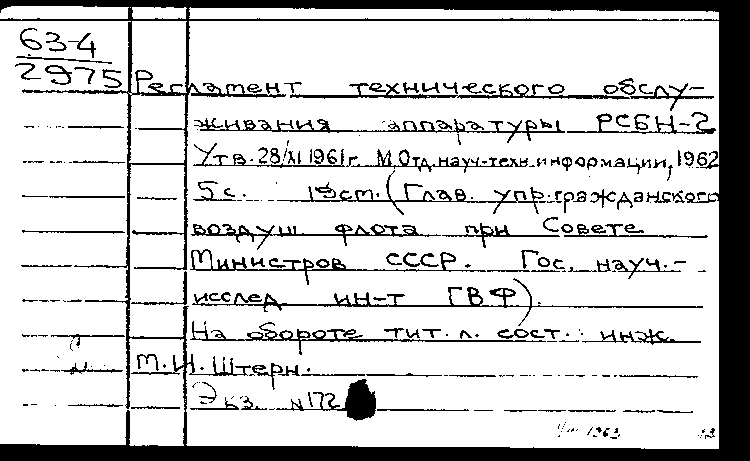 63-4
2975
Регламент технического обслу-
живания аппаратуры РСБН-2
Утв. 28/XI 1961г. М, Отд. науч-техн. информации, 1962
5 с. 19 см. (Глав. упр. гражданского
воздуш флота при Совете
Министров СССР. Гос. науч.-
исслед. ин-т ГВФ).
На обороте тит. л. сост.: инж.
М.Н. Штерн.
Экз. №172
1963